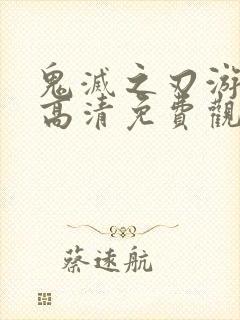 鬼滅之刃游
高清免費觀
蔡遠航